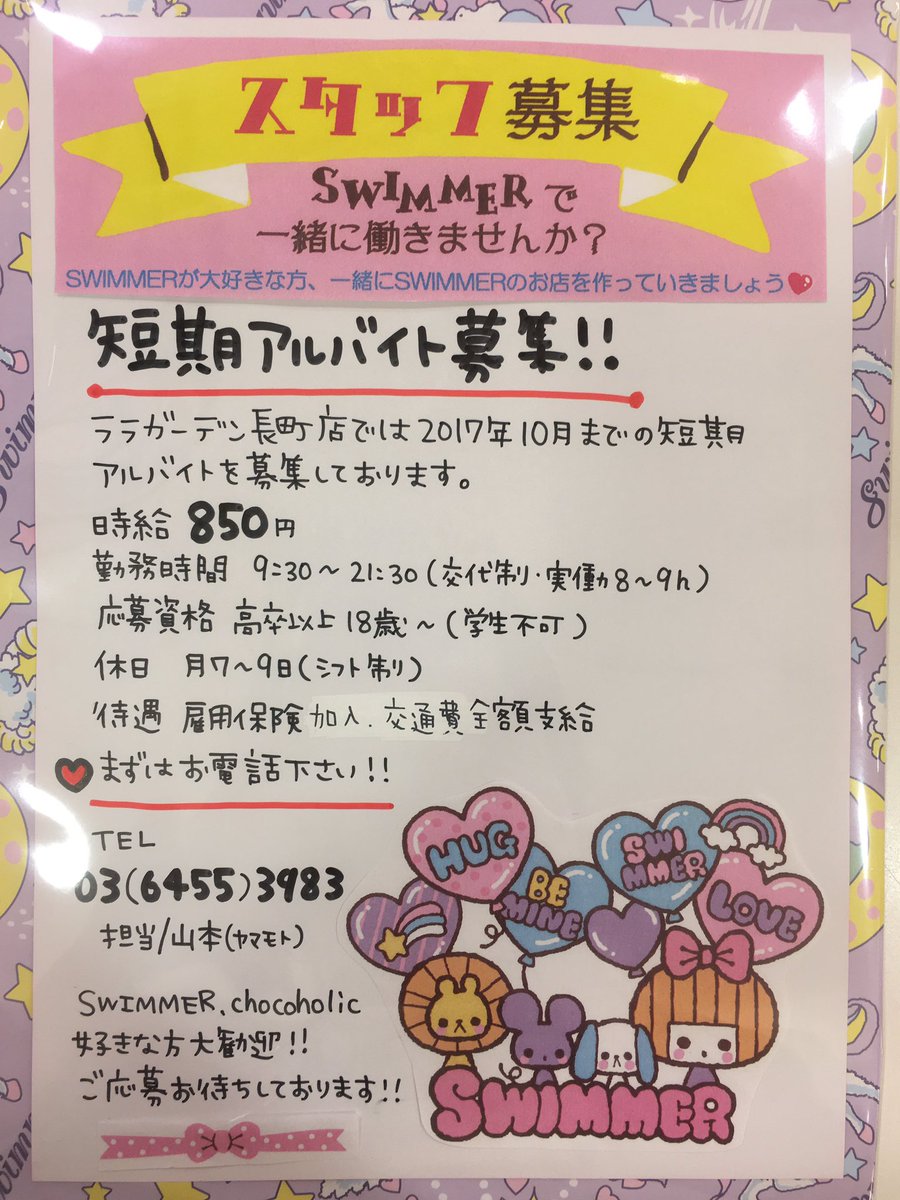 スタッフ募集
SWIMMERで
一緒に働きませんか?
SWIMMERが大好きな方、一緒にSWIMMERのお店を作っていきましょう
短期アルバイト募集!!
ララガーデン長町店では2017年10月までの短期
アルバイトを募集しております。
時給 850円
勤務時間 9:30~21:30(交代制・実働8~9h)
応募資格 高卒以上18歳~(学生不可)
休日 月7~9日(シフト制)
待遇 雇用保険加入.交通費全額支給
まずはお電話下さい!!
TEL
03(6455)3983
担当/山本(ヤマモト)
SWIMMER.chocoholic
好きな方大歓迎!!
ご応募お待ちしております!!
HUG
BE
MINE
SWI
MMER
LOVE
SWIMMER
Swimmer
Swimmer